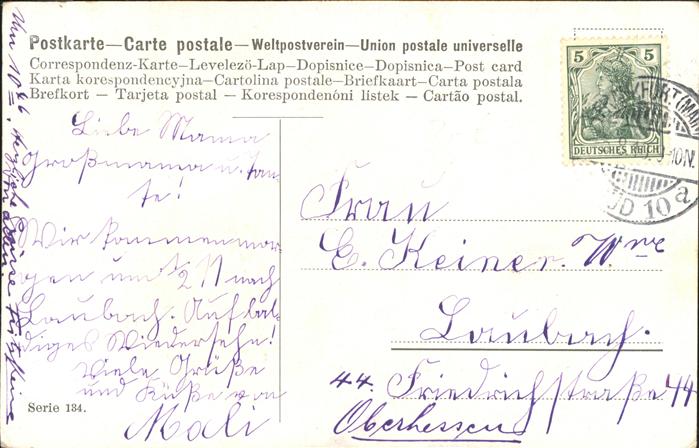 Postkarte—Carte postale—Weltpostverein—Union postale universelle
Correspondenz-Karte—Levelező-Lap—Dopisnice—Dopisnica—Post card
Karta korespondencyjna—Cartolina postale—Briefkaart—Carta postala
Brefkort — Tarjeta postal — Korespondenóni listek — Cartão postal.
5 5
DEUTSCHES REICH
FURT (MAIN
10N
10 a
Liebe Mama
Großmama u. Tan-
te!
Wir kommen mor-
gen um 1/2 11 nach
Laubach. Auf bal-
diges Wiedersehn!
Viele Grüße
und Küße von
Mali
Frau
E. Keiner. Wwe
Laubach.
44. Friedrichstraße 44
Oberhessen
Serie 184.